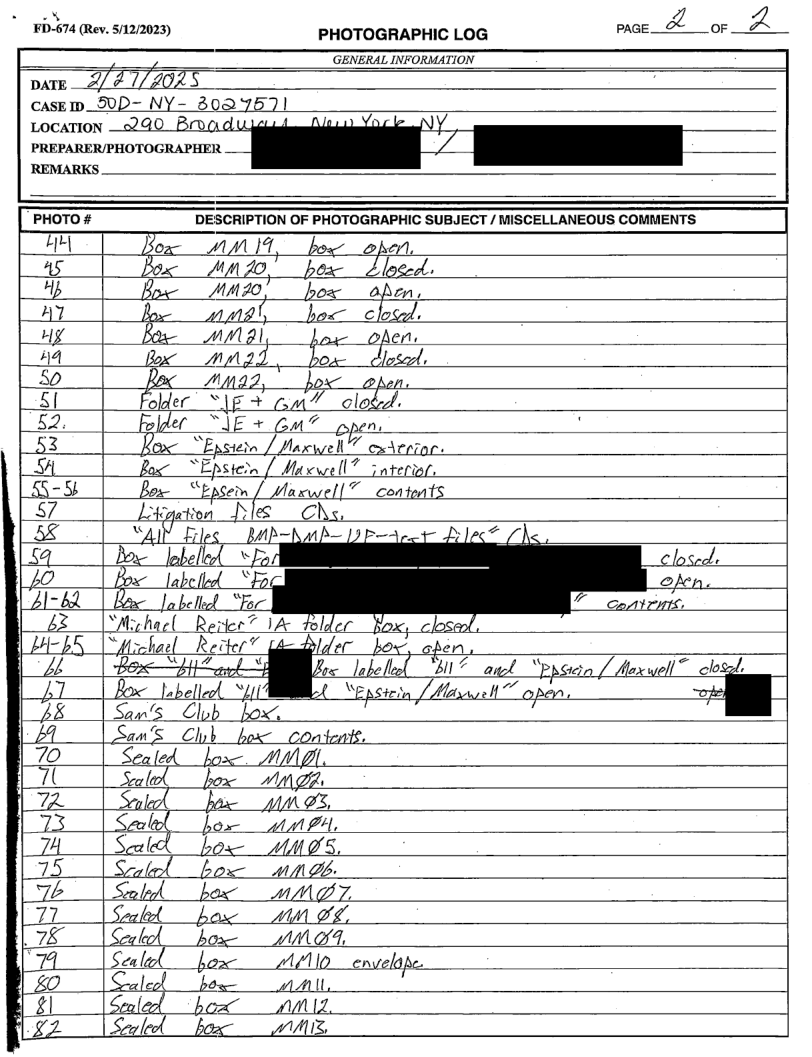 FD-674 (Rev. 5/12/2023)
PHOTOGRAPHIC LOG
PAGE 2 OF 2
GENERAL INFORMATION
DATE 2/27/2025
CASE ID 50D-NY-3027571
LOCATION 290 Broadway, New York, NY
PREPARER/PHOTOGRAPHER /
REMARKS
PHOTO # DESCRIPTION OF PHOTOGRAPHIC SUBJECT / MISCELLANEOUS COMMENTS
44 Box MM19, box open.
45 Box MM20, box closed.
46 Box MM20, box open.
47 Box MM21, box closed.
48 Box MM21, box open.
49 Box MM22, box closed.
50 Box MM22, box open.
51 Folder "JE + GM" closed.
52. Folder "JE + GM" open.
53 Box "Epstein / Maxwell" exterior.
54 Box "Epstein / Maxwell" interior.
55-56 Box "Epsein / Maxwell" contents
57 Litigation files CDs.
58 "All Files BMP-DMP-I2F-text files" CDs.
59 Box labelled "For closed.
60 Box labelled "For open.
61-62 Box labelled "For " contents.
63 "Michael Reiter" 1A folder box, closed.
64-65 "Michael Reiter" 1A folder box, open.
66 Box "b11" and "E Box labelled "b11" and "Epstein / Maxwell" closed.
67 Box labelled "b11" d "Epstein / Maxwell" open. ope
68 Sam's Club box.
69 Sam's Club box contents.
70 Sealed box MMØ1.
71 Sealed box MMØ2.
72 Sealed box MMØ3.
73 Sealed box MMØ4.
74 Sealed box MMØ5.
75 Sealed box MMØ6.
76 Sealed box MMØ7.
77 Sealed box MMØ8.
78 Sealed box MMØ9.
79 Sealed box MM10 envelope
80 Sealed box MM11.
81 Sealed box MM12.
82 Sealed box MM13.